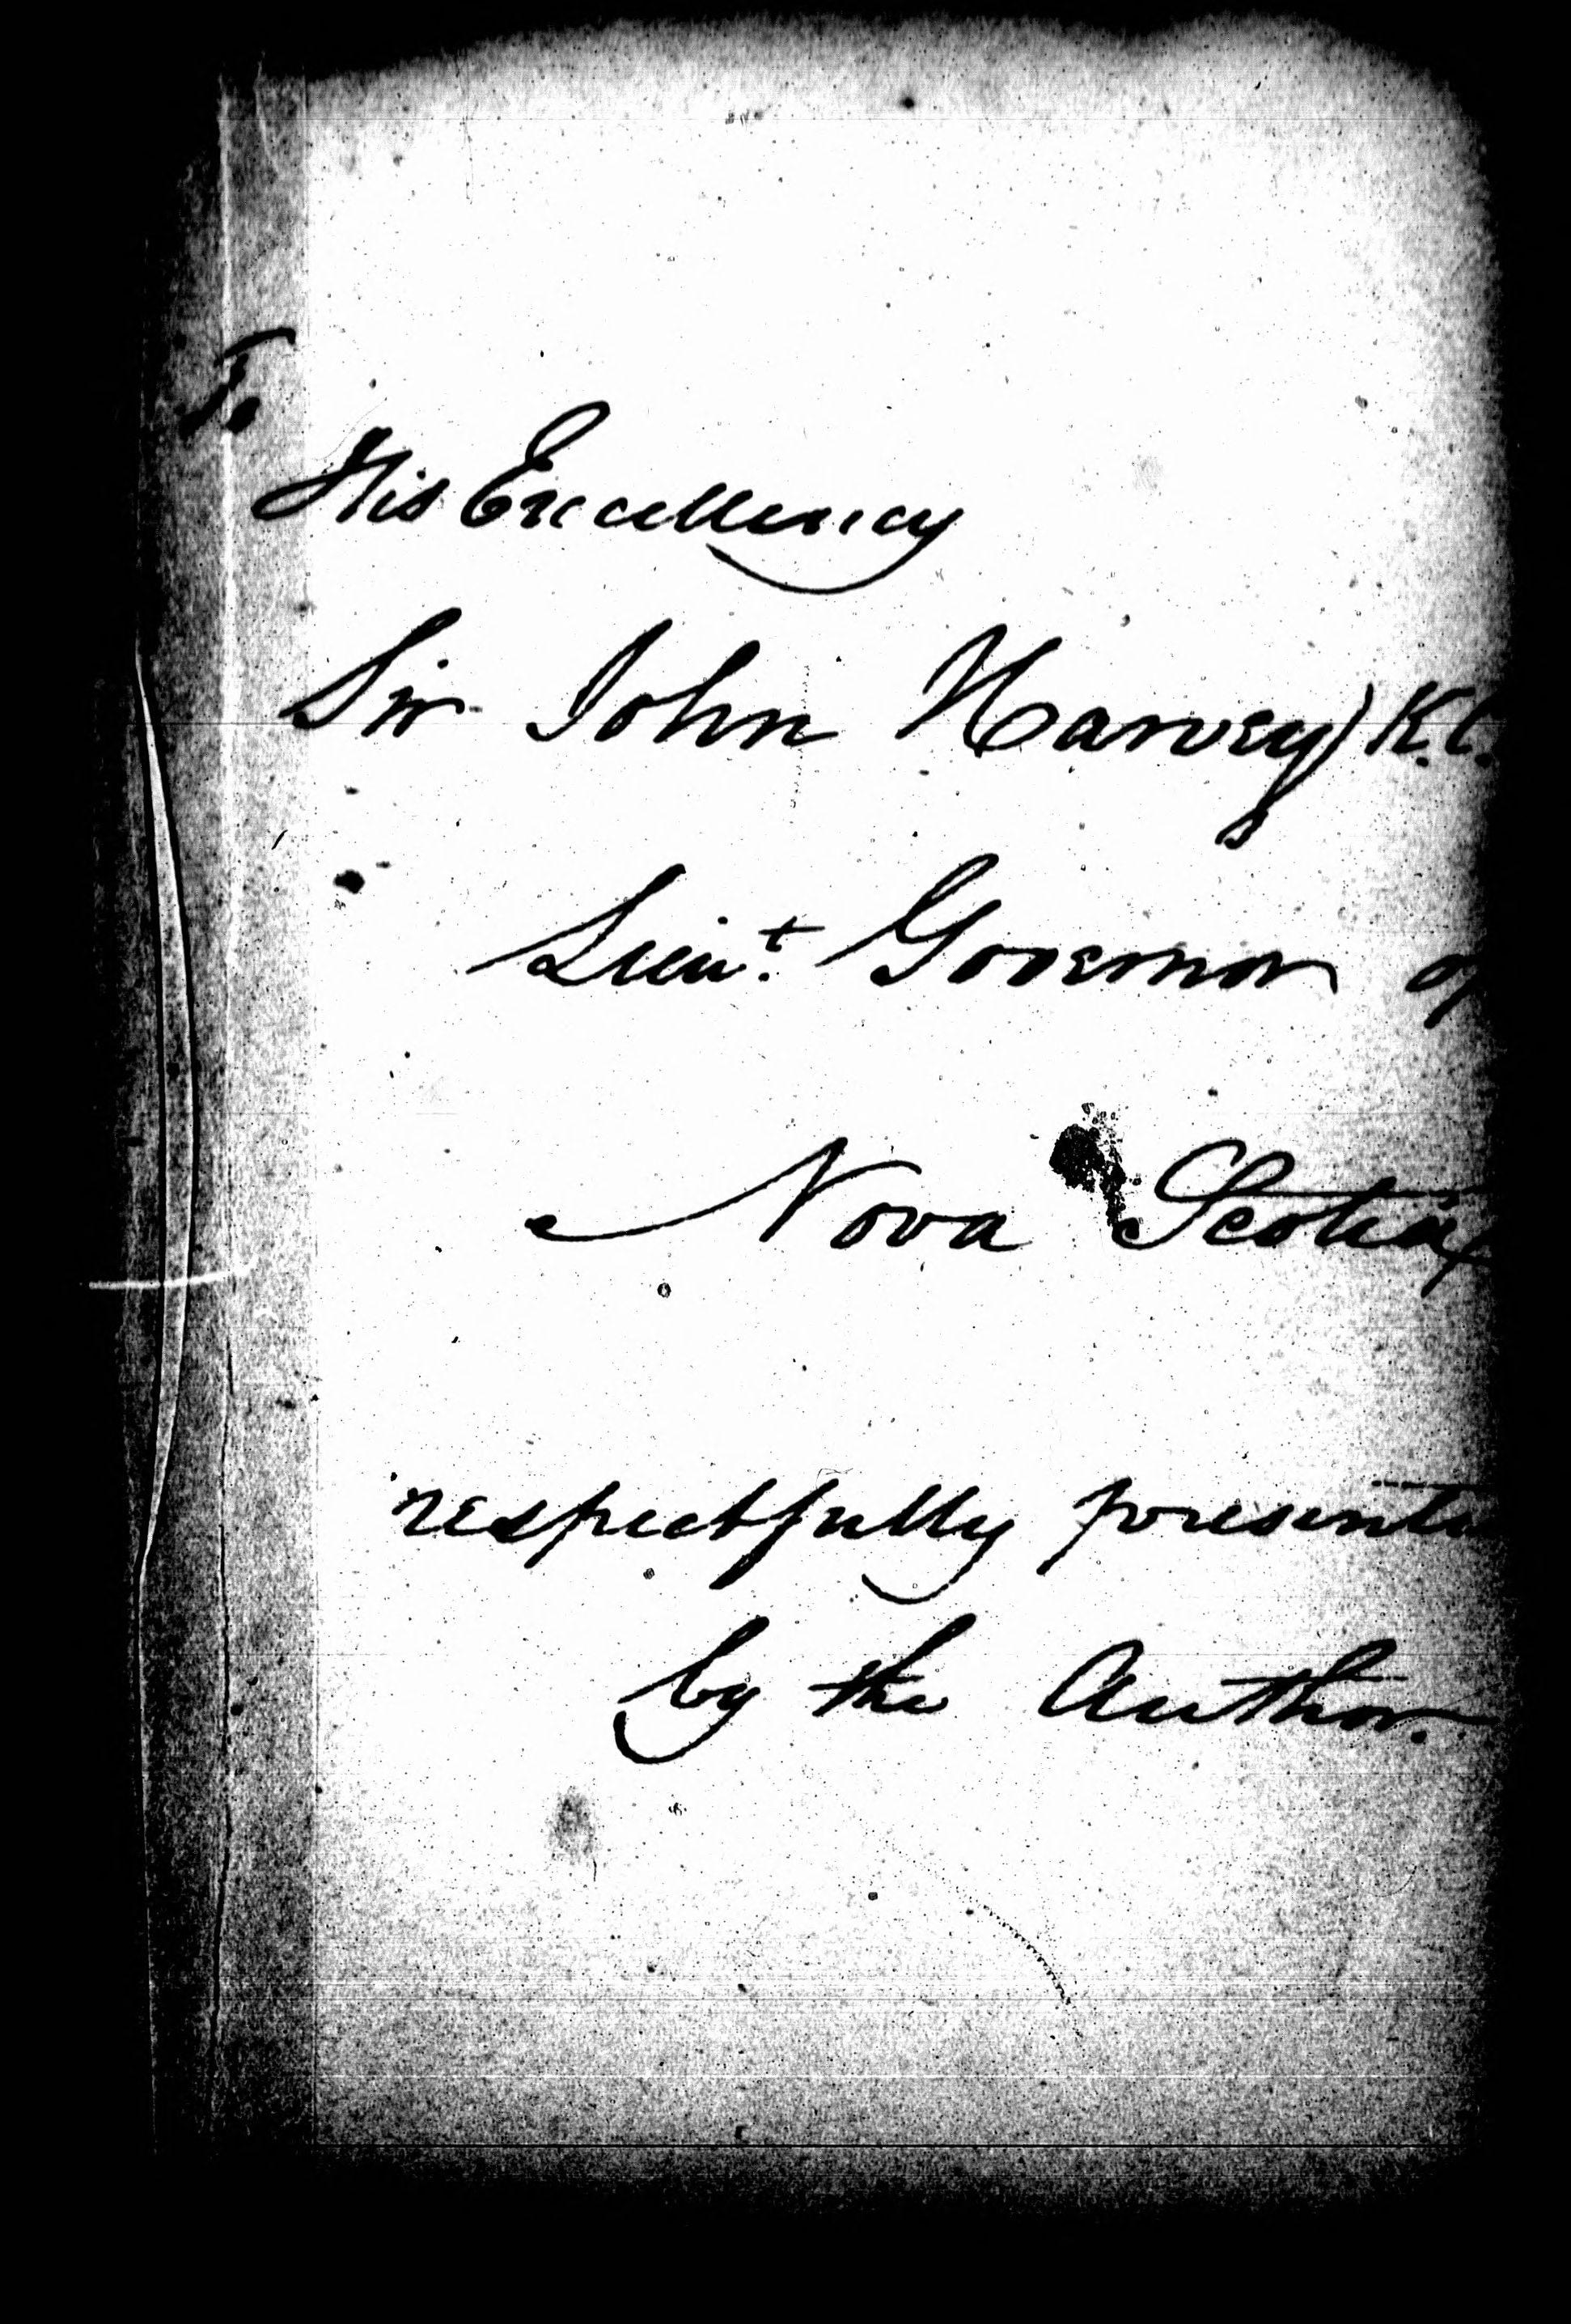 To
His Excellency
Sir John Harvey K.C.
Lieut. Governor of
Nova Scotia
respectfully presente
by the Author.